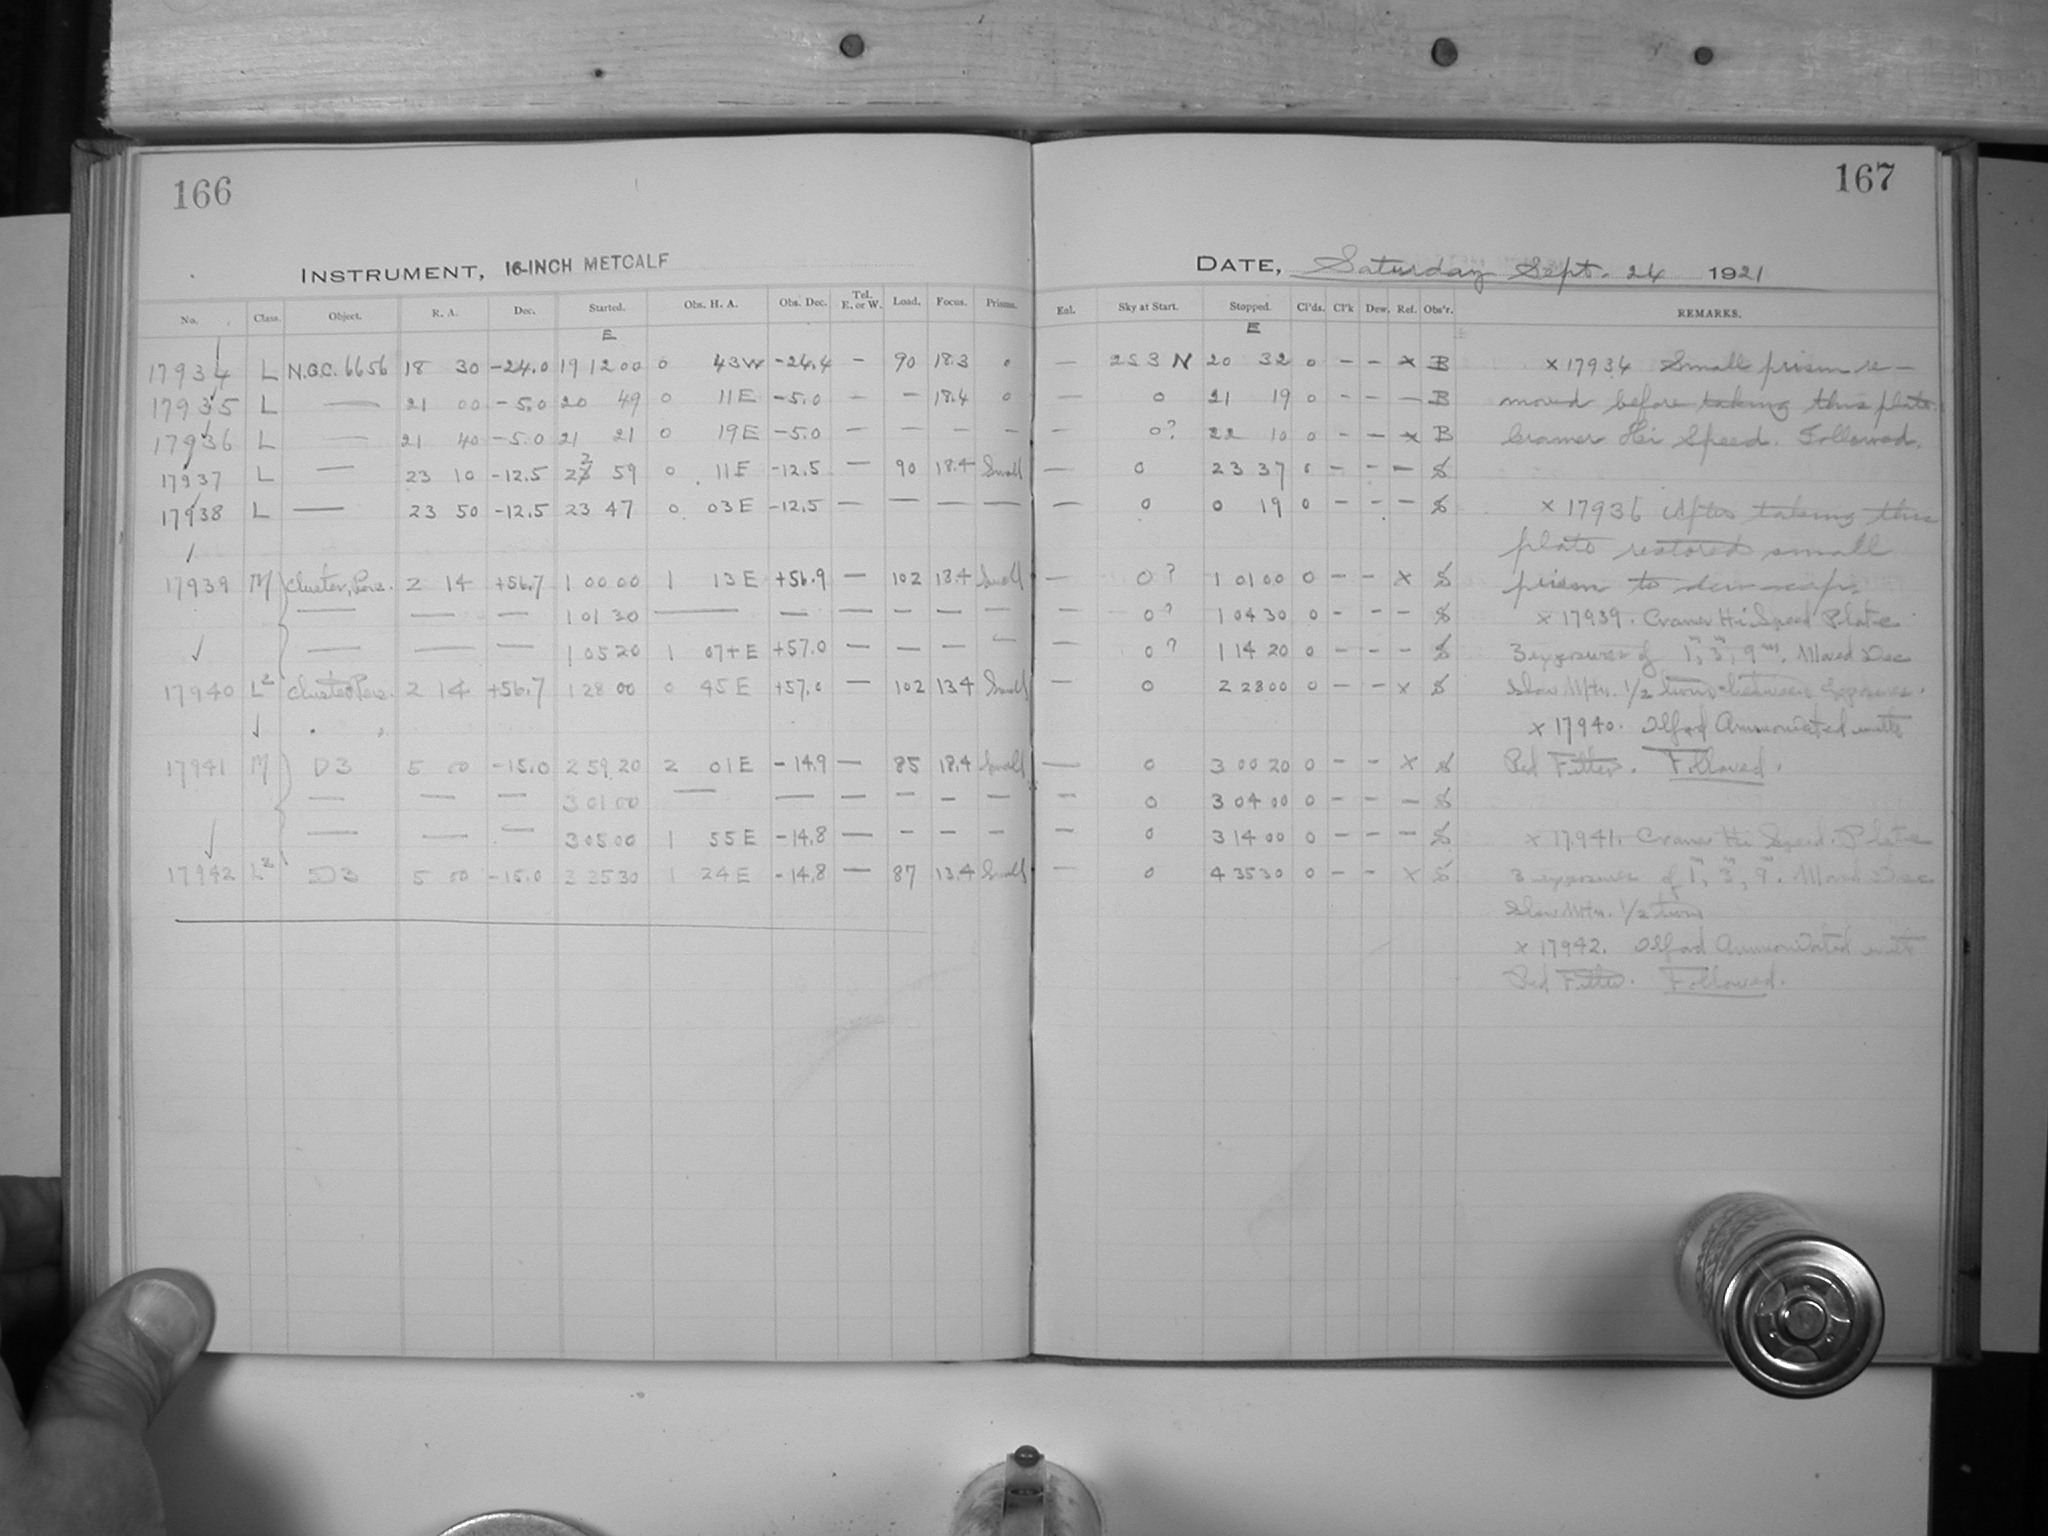 166
INSTRUMENT, 16-INCH METCALF
No. Class. Object. R. A. Dec. Started. Obs. H. A. Obs. Dec. Tel. E. or W. Load. Focus. Prisms.
E
17934 L N.G.C. 6656 18 30 -24.0 19 12 00 0 43W -24.4 - 90 18.3 0
17935 L — 21 00 -5.0 20 49 0 11E -5.0 - - 18.4 0
17936 L — 21 40 -5.0 21 21 0 19E -5.0 - - - -
17937 L — 23 10 -12.5 22 59 0 11E -12.5 - 90 18.4 Small
17938 L — 23 50 -12.5 23 47 0 03E -12.5 - — — —
17939 M Cluster, Pers. 2 14 +56.7 1 00 00 1 13E +56.9 - 102 18.4 Small
— — — 1 01 30 — — — — — —
— — — 1 05 20 1 07+E +57.0 — — — —
17940 L2 Cluster Pers. 2 14 +56.7 1 28 00 0 45E +57.0 - 102 13.4 Small
17941 M D3 5 00 -15.0 2 59 20 2 01E -14.9 — 85 18.4 Small
— — — 3 01 00 — — — — — —
— — — 3 05 00 1 55E -14.8 — — — —
17942 L2 D3 5 00 -15.0 3 35 30 1 24E -14.8 — 87 13.4 Small
167
DATE, Saturday Sept. 24 1921
Enl. Sky at Start. Stopped. Cl'ds. Cl'k Dew. Ref. Obs'r. REMARKS.
E
— 2S3N 20 32 0 - - x B
— 0 21 19 0 - - - B
— 0? 22 10 0 - - x B
— 0 23 37 0 - - - S
— 0 0 19 0 - - - S
— 0? 1 01 00 0 - - x S
— 0? 1 04 30 0 - - - S
— 0? 1 14 20 0 - - - S
— 0 2 28 00 0 - - x S
— 0 3 00 20 0 - - x S
— 0 3 04 00 0 - - - S
— 0 3 14 00 0 - - - S
0 4 35 30 0 - - x S
x 17934 Small prism re-
moved before taking this plate.
Cramer Hi Speed. Followed.
x 17936 After taking this
plate restored small
prism to dew-cap.
x 17939. Cramer Hi Speed Plate
3 exposures of 1m, 3m, 9m. Moved Dec
Slow Mtn. 1/2 turn between exposures.
x 17940. Ilford Ammoniated with
Red Filter. Followed.
x 17941. Cramer Hi Speed. Plate
3 exposures of 1m, 3m, 9m. Moved Dec
Slow Mtn. 1/2 turn
x 17942. Ilford Ammoniated with
Red Filter. Followed.